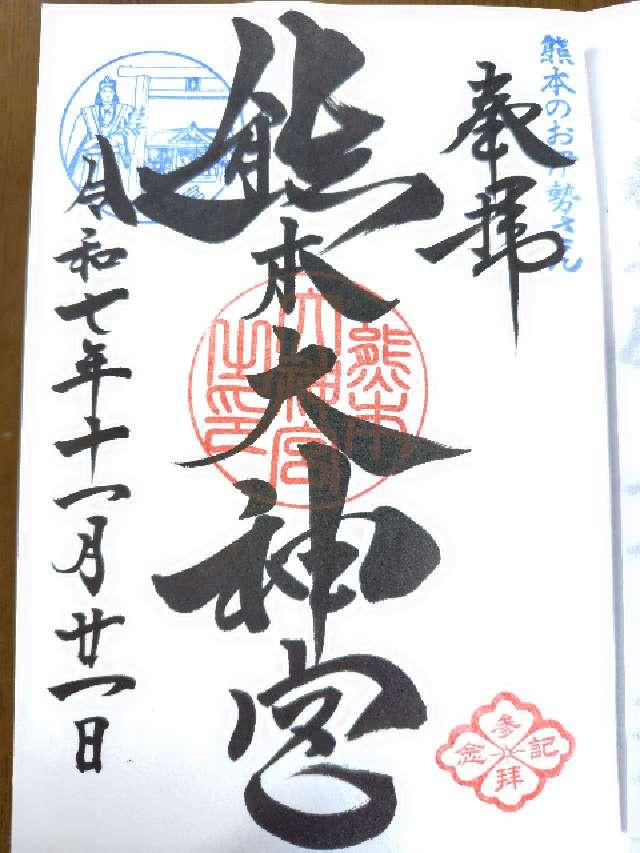 熊本のお伊勢さん
奉拝
熊本大神宮
熊本
大神宮
之印
令和七年十一月廿一日
参拝
記念